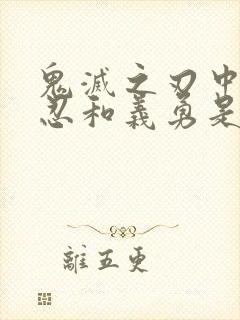 鬼滅之刃中
忍和義勇是
離五更